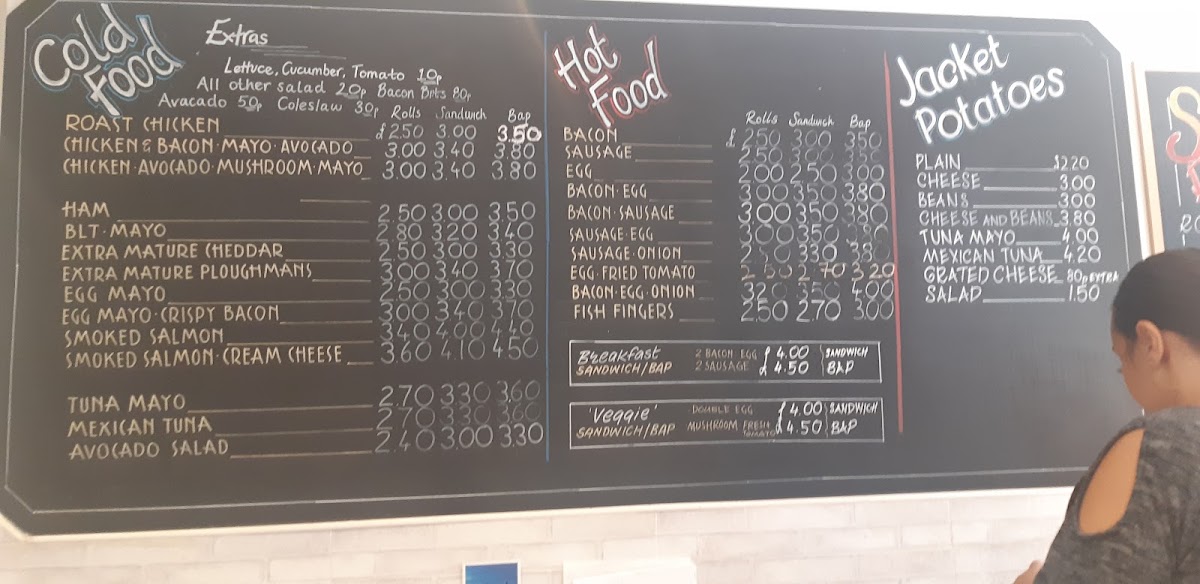 Cold Food
Extras
Lettuce, Cucumber, Tomato 10p
All other salad 20p Bacon Bits 80p
Avacado 50p Coleslaw 30p
Rolls Sandwich Bap
ROAST CHICKEN £2.50 3.00 3.50
CHICKEN & BACON·MAYO·AVOCADO 3.00 3.40 3.80
CHICKEN·AVOCADO·MUSHROOM·MAYO 3.00 3.40 3.80
HAM 2.50 3.00 3.50
BLT·MAYO 2.80 3.20 3.40
EXTRA MATURE CHEDDAR 2.50 3.00 3.30
EXTRA MATURE PLOUGHMANS 3.00 3.40 3.70
EGG MAYO 2.50 3.00 3.30
EGG MAYO·CRISPY BACON 3.00 3.40 3.70
SMOKED SALMON 3.40 4.00 4.40
SMOKED SALMON·CREAM CHEESE 3.60 4.10 4.50
TUNA MAYO 2.70 3.30 3.60
MEXICAN TUNA 2.70 3.30 3.60
AVOCADO SALAD 2.40 3.00 3.30
Hot Food
Rolls Sandwich Bap
BACON £2.50 3.00 3.50
SAUSAGE 2.50 3.00 3.50
EGG 2.00 2.50 3.00
BACON·EGG 3.00 3.50 3.80
BACON·SAUSAGE 3.00 3.50 3.80
SAUSAGE·EGG 3.00 3.50 3.80
SAUSAGE·ONION
EGG·FRIED TOMATO 2.70 3.20
BACON·EGG·ONION 3.20 4.00
FISH FINGERS 2.50 2.70 3.00
Breakfast 2 BACON EGG £4.00 SANDWICH
SANDWICH/BAP 2 SAUSAGE £4.50 BAP
'Veggie' DOUBLE EGG £4.00 SANDWICH
SANDWICH/BAP MUSHROOM FRESH TOMATO £4.50 BAP
Jacket Potatoes
PLAIN £2.20
CHEESE 3.00
BEANS 3.00
CHEESE AND BEANS 3.80
TUNA MAYO 4.00
MEXICAN TUNA 4.20
GRATED CHEESE 80p EXTRA
SALAD 1.50